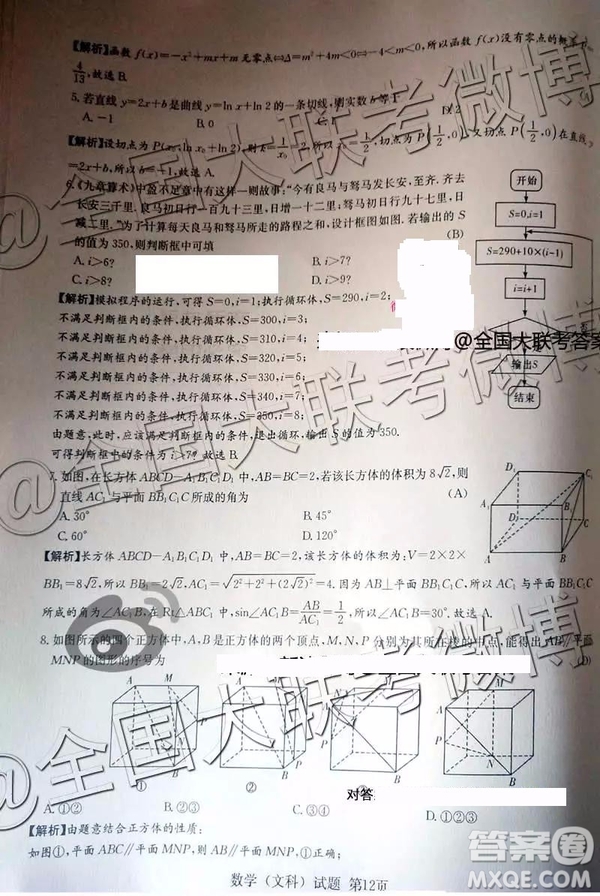 【解析】函数 f(x)=-x²+mx+m 无零点⇔Δ=m²+4m<0⇔-4<m<0,所以函数 f(x)没有零点的概率
4/13,故选 B.
5.若直线 y=2x+b 是曲线 y=ln x+ln 2 的一条切线,则实数 b 等于
A. -1 B. 0 C. 1
【解析】设切点为 P(x₀,ln x₀+ln 2),则 k=1/x₀=2,所以 x₀=1/2,切点 P(1/2,0),又切点 P(1/2,0)在直线
=2x+b 上,所以 b=-1,故选 A.
6.《九章算术》中盈不足章中有这样一则故事:“今有良马与驽马发长安,至齐.齐去
长安三千里.良马初日行一百九十三里,日增一十二里;驽马初日行九十七里,日
减二里.”为了计算每天良马和驽马所走的路程之和,设计框图如图.若输出的 S
的值为 350,则判断框中可填 (B)
A. i>6? B. i>7?
C. i>8? D. i>9?
开始
S=0,i=1
S=290+10×(i-1)
i=i+1
输出S
结束
【解析】模拟程序的运行,可得 S=0,i=1;执行循环体,S=290,i=2;
不满足判断框内的条件,执行循环体,S=300,i=3;
不满足判断框内的条件,执行循环体,S=310,i=4;
不满足判断框内的条件,执行循环体,S=320,i=5;
不满足判断框内的条件,执行循环体,S=330,i=6;
不满足判断框内的条件,执行循环体,S=340,i=7;
不满足判断框内的条件,执行循环体,S=350,i=8;
由题意,此时,应该满足条件,退出循环,输出 S 的值为 350.
可得判断框中的条件为 i>7? 故选 B.
@全国大联考答案
7.如图,在长方体 ABCD-A₁B₁C₁D₁ 中,AB=BC=2,若该长方体的体积为 8√2,则
直线 AC₁ 与平面 BB₁C₁C 所成的角为 (A)
A. 30° B. 45°
C. 60° D. 120°
【解析】长方体 ABCD-A₁B₁C₁D₁ 中,AB=BC=2,该长方体的体积为:V=2×2×
BB₁=8√2,所以 BB₁=2√2,AC₁=√(2²+2²+(2√2)²)=4.因为 AB⊥平面 BB₁C₁C,所以 AC₁ 与平面 BB₁C₁C
所成的角为∠AC₁B.在 Rt△ABC₁ 中,sin∠AC₁B=AB/AC₁=1/2,所以∠AC₁B=30°.故选 A.
8.如图所示的四个正方体中,A,B 是正方体的两个顶点,M,N,P 分别为其所在棱的中点,能得出 AB∥平面
MNP 的图形的序号为 (D)
① ②
对答
A. ①② B. ②③ C. ③④ D. ①②③
【解析】由题意结合正方体的性质:
如图①,平面 ABC∥平面 MNP,则 AB∥平面 MNP,①正确;
数学(文科)试题 第12页
@全国大联考微博
@全国大联考微博
@全国大联考微博
答案圈
MXQE.COM